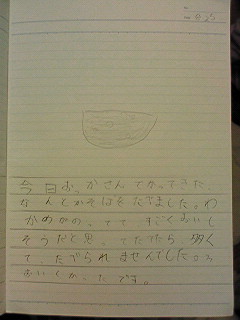 8/25
今日お、かさんてかってきた、
なんとかそばをたべました。わ
かめがめ。てて、すごくおいし
そうだと思。てたべたら、多く
て、たべられませんでしたから
おいしか、たです。